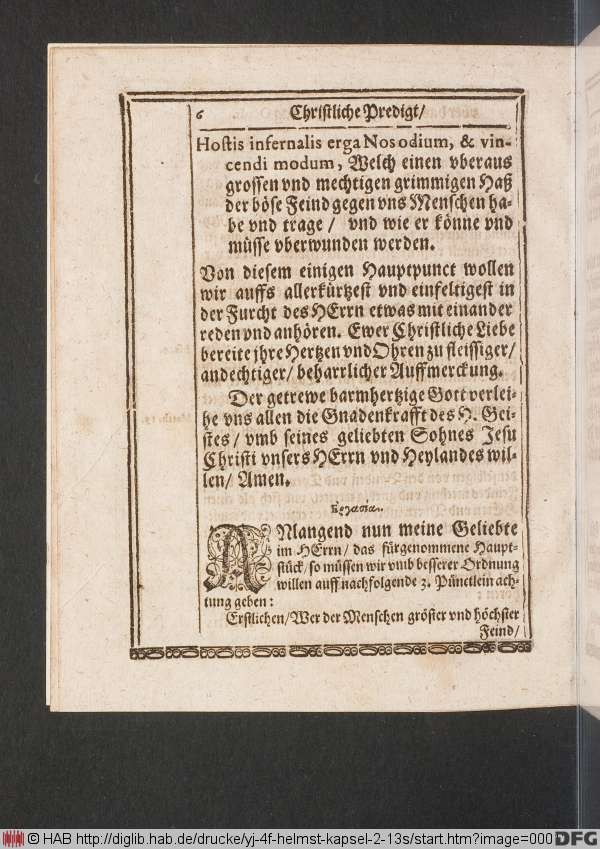 6 Christliche Predigt/
Hostis infernalis erga Nos odium, & vin-
cendi modum, Welch einen vberaus
grossen vnd mechtigen grimmigen Haß
der böse Feind gegen vns Menschen ha-
be vnd trage / vnd wie er könne vnd
müsse vberwunden werden.
Von diesem einigen Hauptpunct wollen
wir auffs allerkürtzest vnd einfeltigest in
der Furcht des HErrn etwas mit einander
reden vnd anhören. Ewer Christliche Liebe
bereite jhre Hertzen vnd Ohren zu fleissiger/
andechtiger/ beharrlicher Auffmerckung.
Der getrewe barmhertzige Gott verlei-
he vns allen die Gnadenkrafft des H. Gei-
stes/ vmb seines geliebten Sohnes Jesu
Christi vnsers HErrn vnd Heylandes wil-
len/ Amen.
ANlangend nun meine Geliebte
im HErrn/ das fürgenommene Haupt-
stück/ so müssen wir vmb besserer Ordnung
willen auff nachfolgende 3. Pünctlein ach-
tung geben:
Erstlichen/ Wer der Menschen gröster vnd höchster
Feind/
© HAB http://diglib.hab.de/drucke/yj-4f-helmst-kapsel-2-13s/start.htm?image=000
DFG